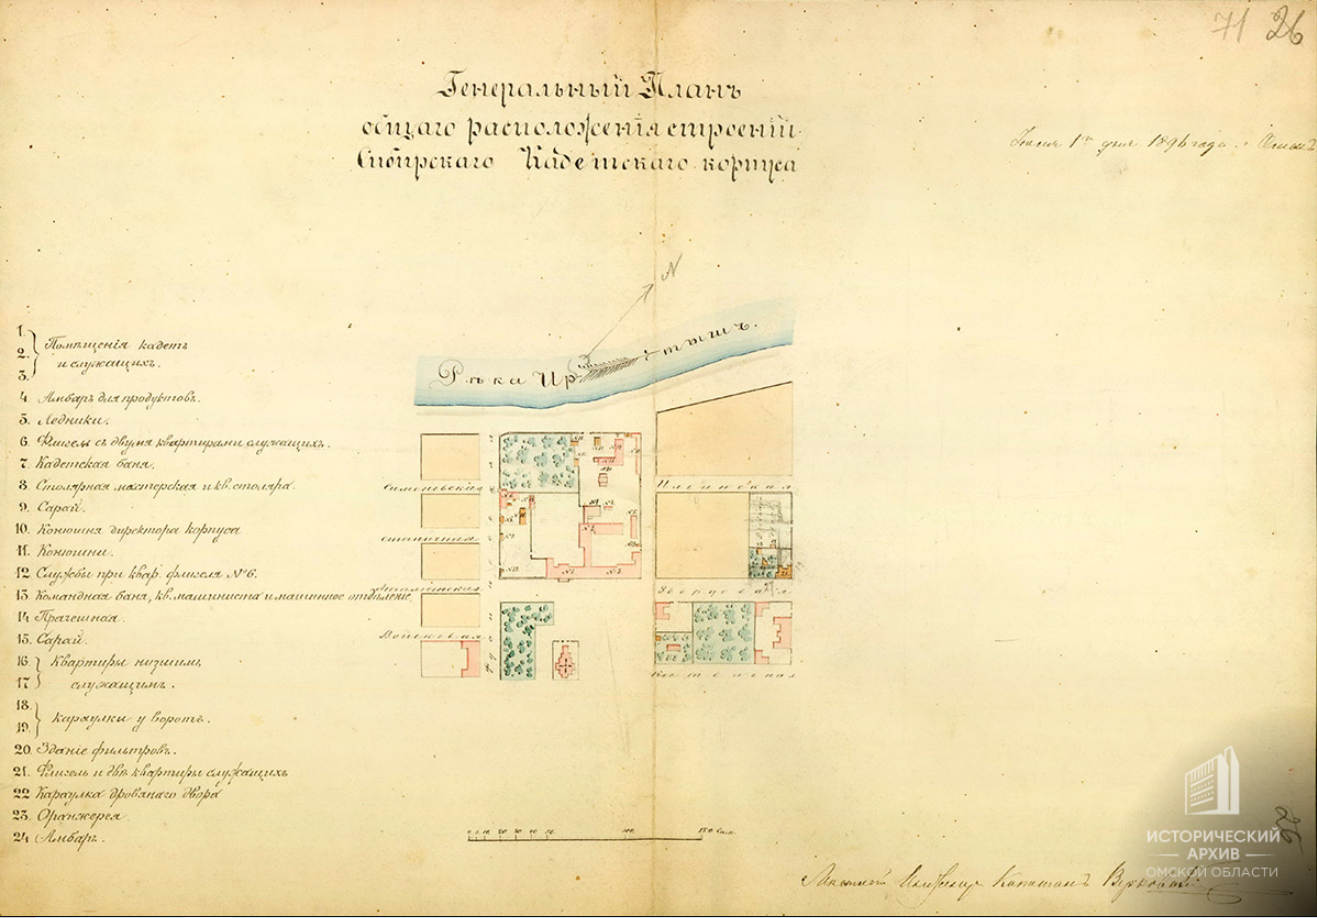 71 26
Генеральный Планъ
общаго расположенія строеній
Сибирскаго Кадетскаго корпуса
Іюля 1го дня 1896 года. г. Омскъ
N
Рѣка Иртышъ.
1.
2.
3.
Помѣщенія кадетъ
и служащихъ.
4. Амбаръ для продуктовъ.
5. Ледники.
6. Флигель съ двумя квартирами служащихъ.
7. Кадетская баня.
8. Столярная мастерская и кв. столяра.
9. Сарай.
10. Конюшня директора корпуса
11. Конюшни.
12. Службы при квар. флигеля №6.
13. Командная баня, кв. машиниста и машинное отдѣленіе.
14. Прачешная.
15. Сарай.
16.
17.
Квартиры низшимъ
служащимъ.
18.
19.
Караулки у воротъ.
20. Зданіе фильтровъ.
21. Флигель и двѣ квартиры служащихъ
22. Караулка дровянаго двора
23. Оранжерея.
24. Амбаръ.
Ильинская
Войсковая
Костельная
100. 150 Саж.
Капитанъ
ИСТОРИЧЕСКИЙ
АРХИВ
ОМСКОЙ ОБЛАСТИ